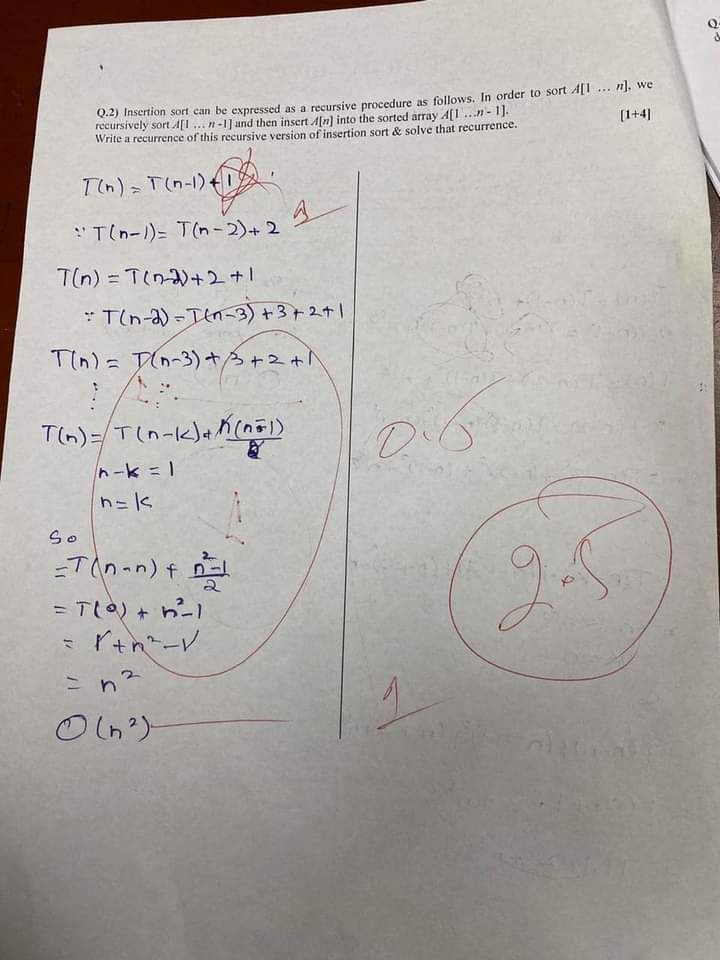 Q.
Q.2) Insertion sort can be expressed as a recursive procedure as follows. In order to sort A[1 … n], we
recursively sort A[1 … n -1] and then insert A[n] into the sorted array A[1 …n - 1].
Write a recurrence of this recursive version of insertion sort & solve that recurrence. [1+4]
T(n) = T(n-1) + 1
∵ T(n-1) = T(n-2) + 2
T(n) = T(n-2) + 2 + 1
∵ T(n-2) = T(n-3) + 3 + 2 + 1
T(n) = T(n-3) + 3 + 2 + 1
T(n) = T(n-k) + n(n-1)/2
n-k = 1
n = k
0.5
So
= T(n-n) + n²-1/2
= T(0) + n²-1
= 1 + n² - 1
= n²
2.5
O(n²)
1